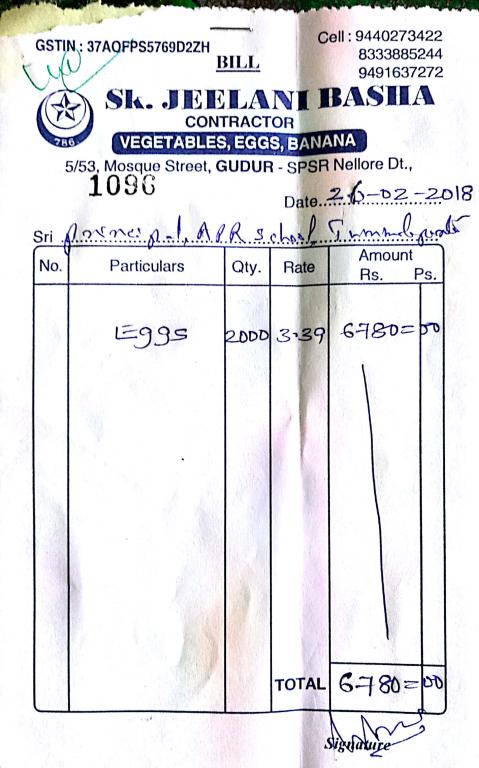 GSTIN : 37AOFPS5769D2ZH
Cell : 9440273422
8333885244
9491637272
BILL
Sk. JEELANI BASHA
CONTRACTOR
786
VEGETABLES, EGGS, BANANA
5/53, Mosque Street, GUDUR - SPSR Nellore Dt.,
1096
Date 26-02-2018
Sri principal, A.P.R School,
No. Particulars Qty. Rate Amount
Rs. Ps.
Eggs 2000 3.39 6780=00
TOTAL 6780=00
Signature